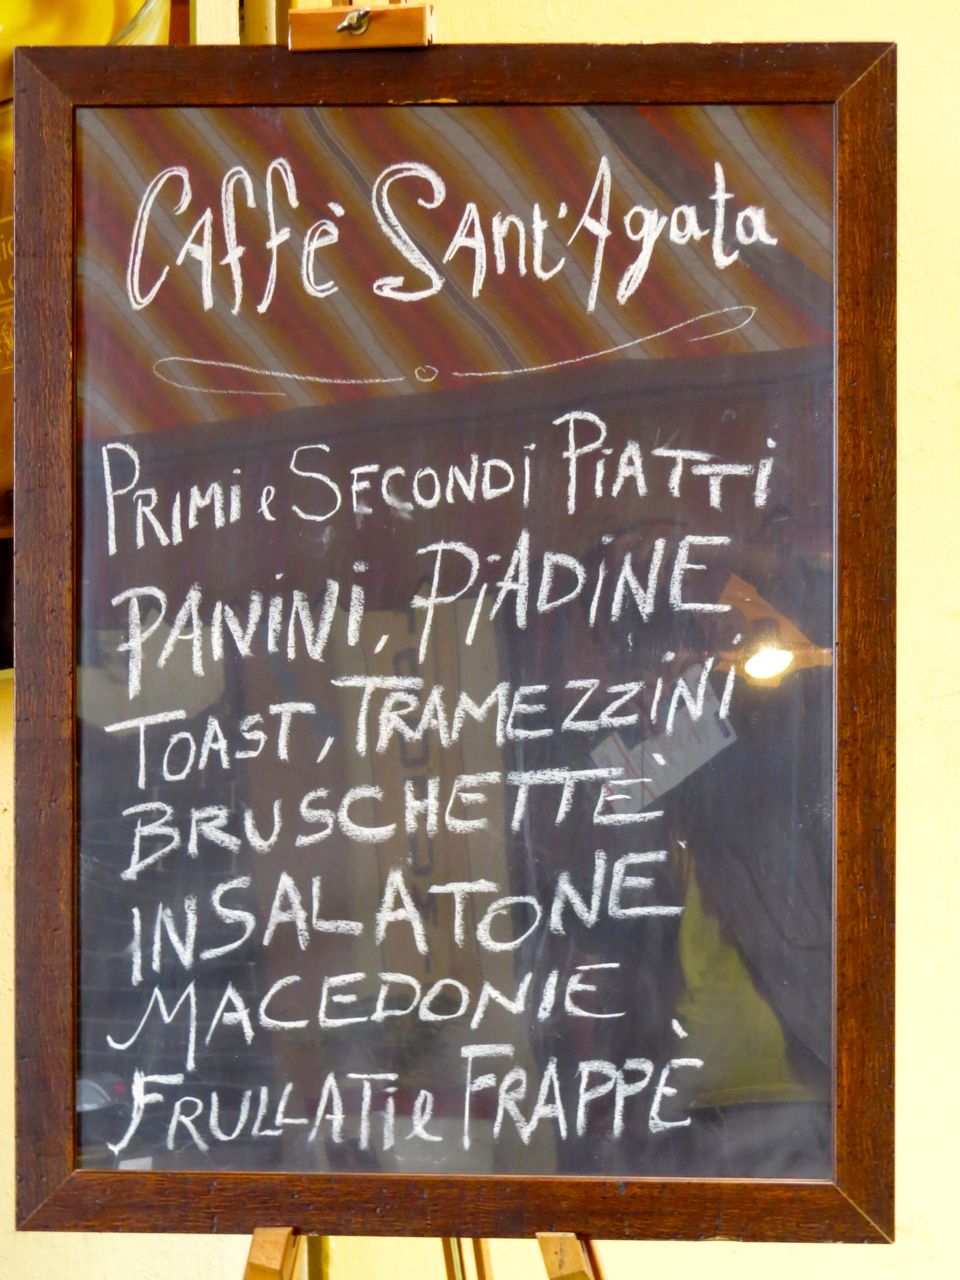 Caffè Sant'Agata
PRIMi e SECONDi PiATTi
PANiNi, PiADiNE,
TOAST, TRAMEZZiNi,
BRUSCHETTE,
INSALATONE,
MACEDONIE
FRULLATi e FRAPPÈ